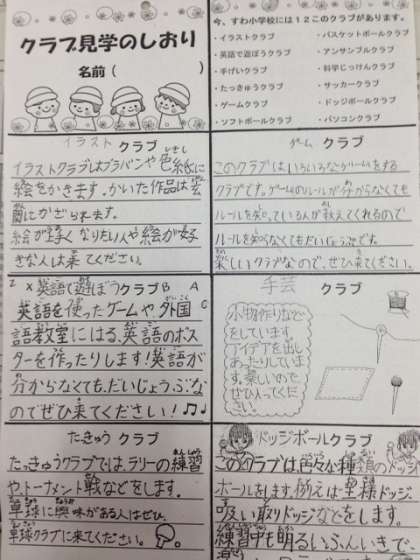 クラブ見学のしおり
名前（　　　　　）
今、すわ小学校には１２このクラブがあります。
・イラストクラブ
・英語で遊ぼうクラブ
・手げいクラブ
・たっきゅうクラブ
・ゲームクラブ
・ソフトボールクラブ
・バスケットボールクラブ
・アンサンブルクラブ
・科学じっけんクラブ
・サッカークラブ
・ドッジボールクラブ
・パソコンクラブ
イラスト クラブ
イラストクラブはプラバンや色紙に
絵をかきます。かいた作品は
にかざられます。
絵が上手くなりたい人や絵が好
きな人は来てください。
ゲーム クラブ
このクラブはいろいろなゲームをする
クラブです。ゲームのルールが分からなくても
ルールを知っている人が教えてくれるので
ルールを知らなくてもだいじょうぶです。
楽しいクラブなので、ぜひ来てください。
英語で遊ぼうクラブ B A
英語を使ったゲームや、外国 C
語教室にはる、英語のポス
ターを作ったりします!英語が
分からなくても、だいじょうぶな
のでぜひ来てください!
手芸 クラブ
小物作りなど
をしています
アイデアを出し
あったりしていま
す。楽しいので
ぜひ入ってくだ
さい。
たっきゅう クラブ
たっきゅうクラブでは、ラリーの練習
やトーナメント戦などをします。
卓球に興味がある人はぜひ、
卓球クラブに来てください。
ドッジボールクラブ
このクラブは色々な種類のドッジ
ボールをします。例えば王様ドッジ、
吸い取りドッジなどをします。
練習中も明るいふんいきで、